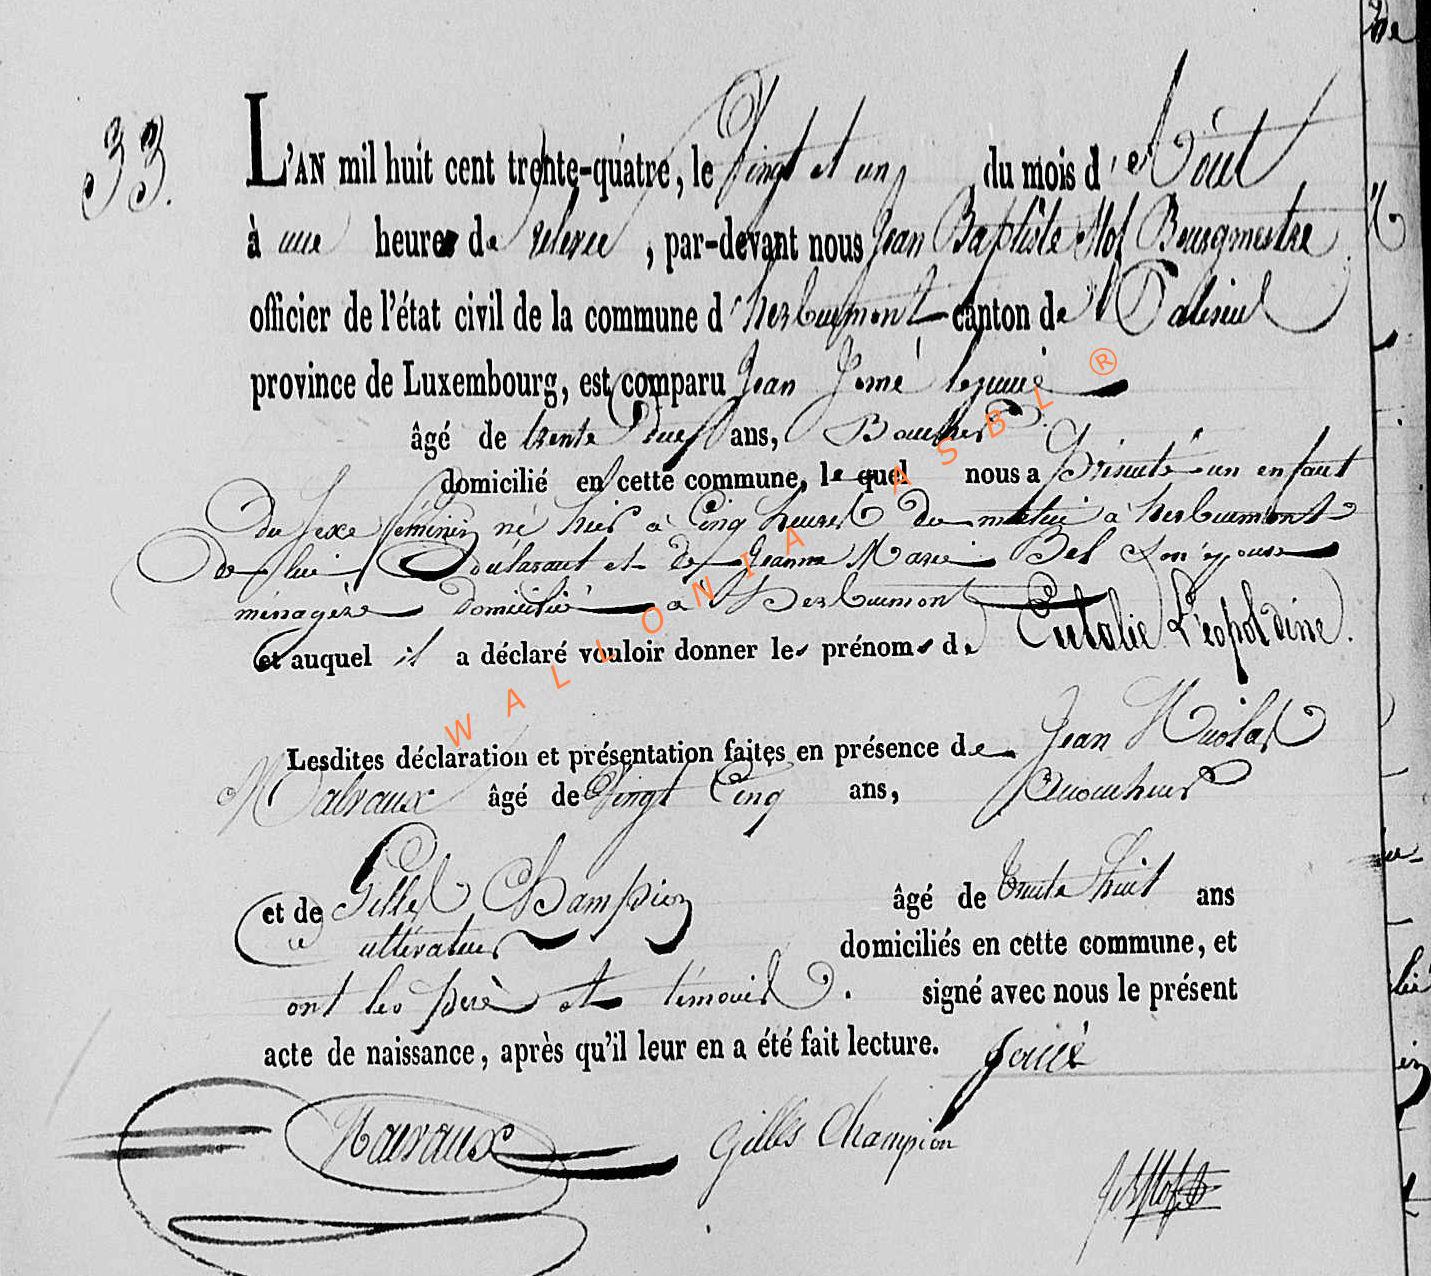 33.
L'AN mil huit cent trente-quatre, le Vingt et un du mois d'Août
à une heure de relevée, par-devant nous Jean Baptiste Bourgmestre
officier de l'état civil de la commune d'herbeumont canton de Paliseul
province de Luxembourg, est comparu Jean
âgé de trente ans,
domicilié en cette commune, lequel nous a présenté un enfant
du sexe féminin né hier à Cinq heures du matin à herbeumont
de lui Déclarant et de Jeanne Marie Bel son épouse
ménagère domicilié à herbeumont
et auquel il a déclaré vouloir donner les prénoms de Eutalie Léopoldine.
Lesdites déclaration et présentation faites en présence de Jean Nicolas
Malvaux âgé de Vingt Cinq ans,
et de Gilles Champion âgé de trente huit ans
cultivateur domiciliés en cette commune, et
ont les père et témoins. signé avec nous le présent
acte de naissance, après qu'il leur en a été fait lecture.
Gilles Champion
WALLONIA ASBL ®